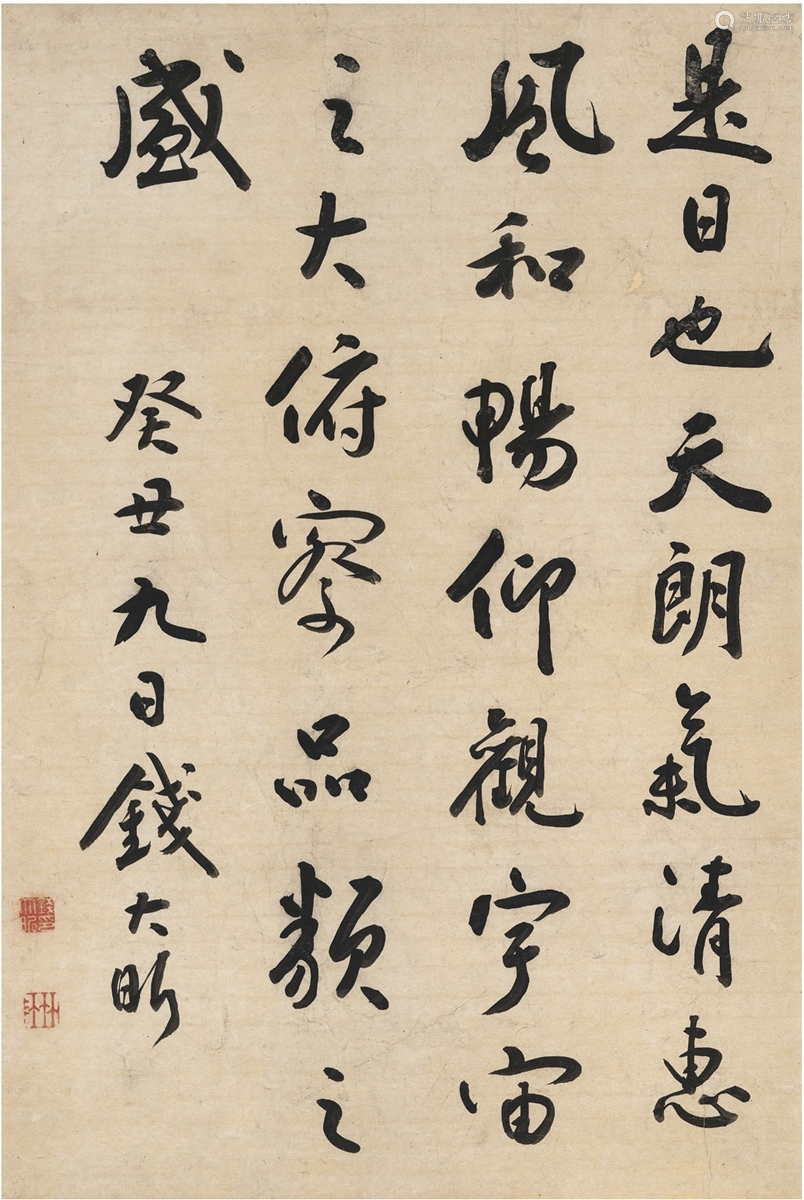 是日也天朗氣清惠
風和暢仰觀宇宙
之大俯察品類之
盛
癸丑九日錢大昕